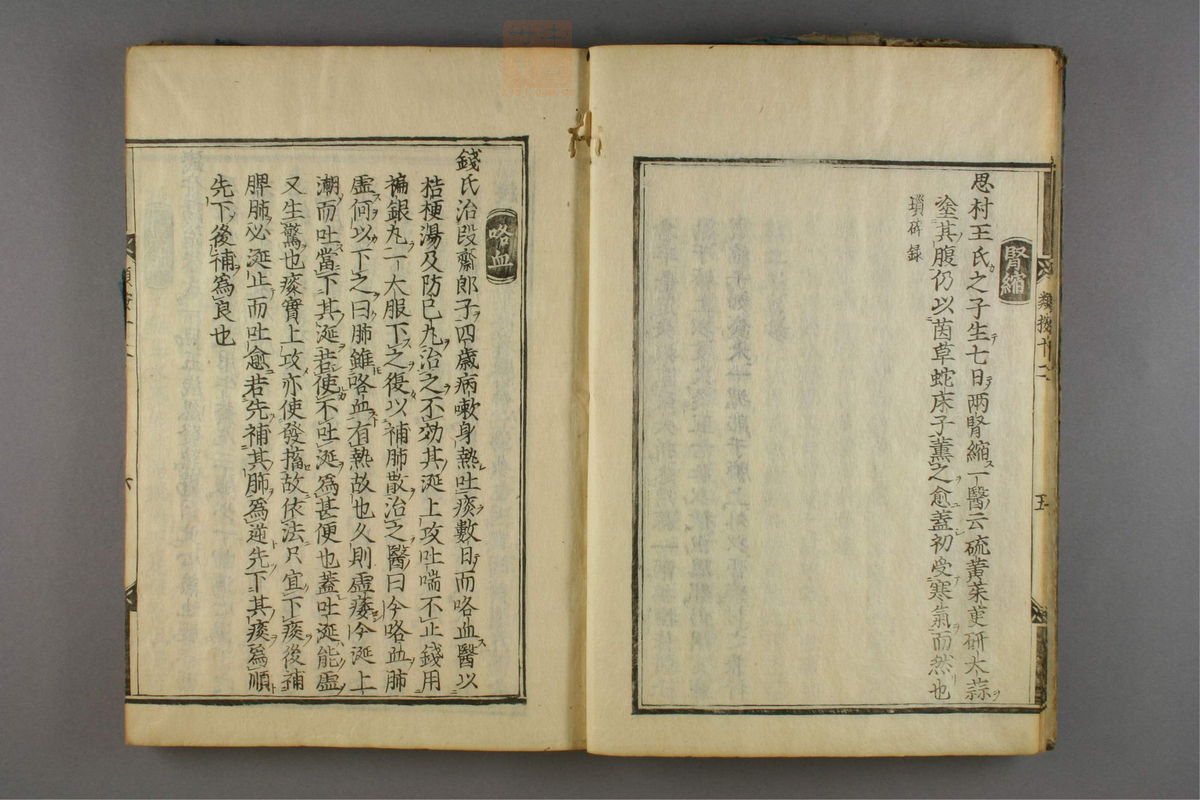 類按十二
五
腎縮
思村王氏之子生七日兩腎縮一醫云硫黃茱萸研大蒜
塗其腹仍以茵草蛇床子薰之愈蓋初受寒氣而然也
瑣碎録
咯血
錢氏治段齋郎子四歲病嗽身熱吐痰數日而咯血醫以
桔梗湯及防已丸治之不効其涎上攻吐喘不止錢用
褊銀丸一大服下之復以補肺散治之醫曰今咯血肺
虛何以下之曰肺雖咯血有熱故也久則虛痿今涎上
潮而吐當下其涎若使不吐涎爲甚便也蓋吐涎能虛
又生驚也痰實上攻亦使發搐故依法只宜下痰後補
脾肺必涎止而吐愈若先補其肺爲逆先下其痰爲順
先下後補爲良也